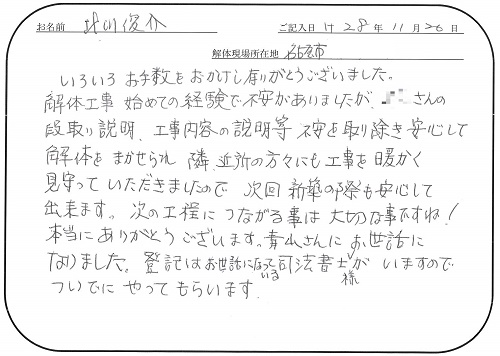 お名前 北川俊介 ご記入日 H28年11月26日
解体現場所在地
いろいろお手数をおかけし有りがとうございました。
解体工事 始めての経験で不安がありましたが、さんの
段取り説明、工事内容の説明等 不安を取り除き安心して
解体をまかせられ 隣、近所の方々にも工事を暖かく
見守っていただきましたので 次回 新築の際も安心して
出来ます。次の工程につながる事は大切な事ですね!
本当にありがとうございます。青山さんにお世話に
なりました。登記はお世話になっている司法書士様がいますので
ついでにやってもらいます。